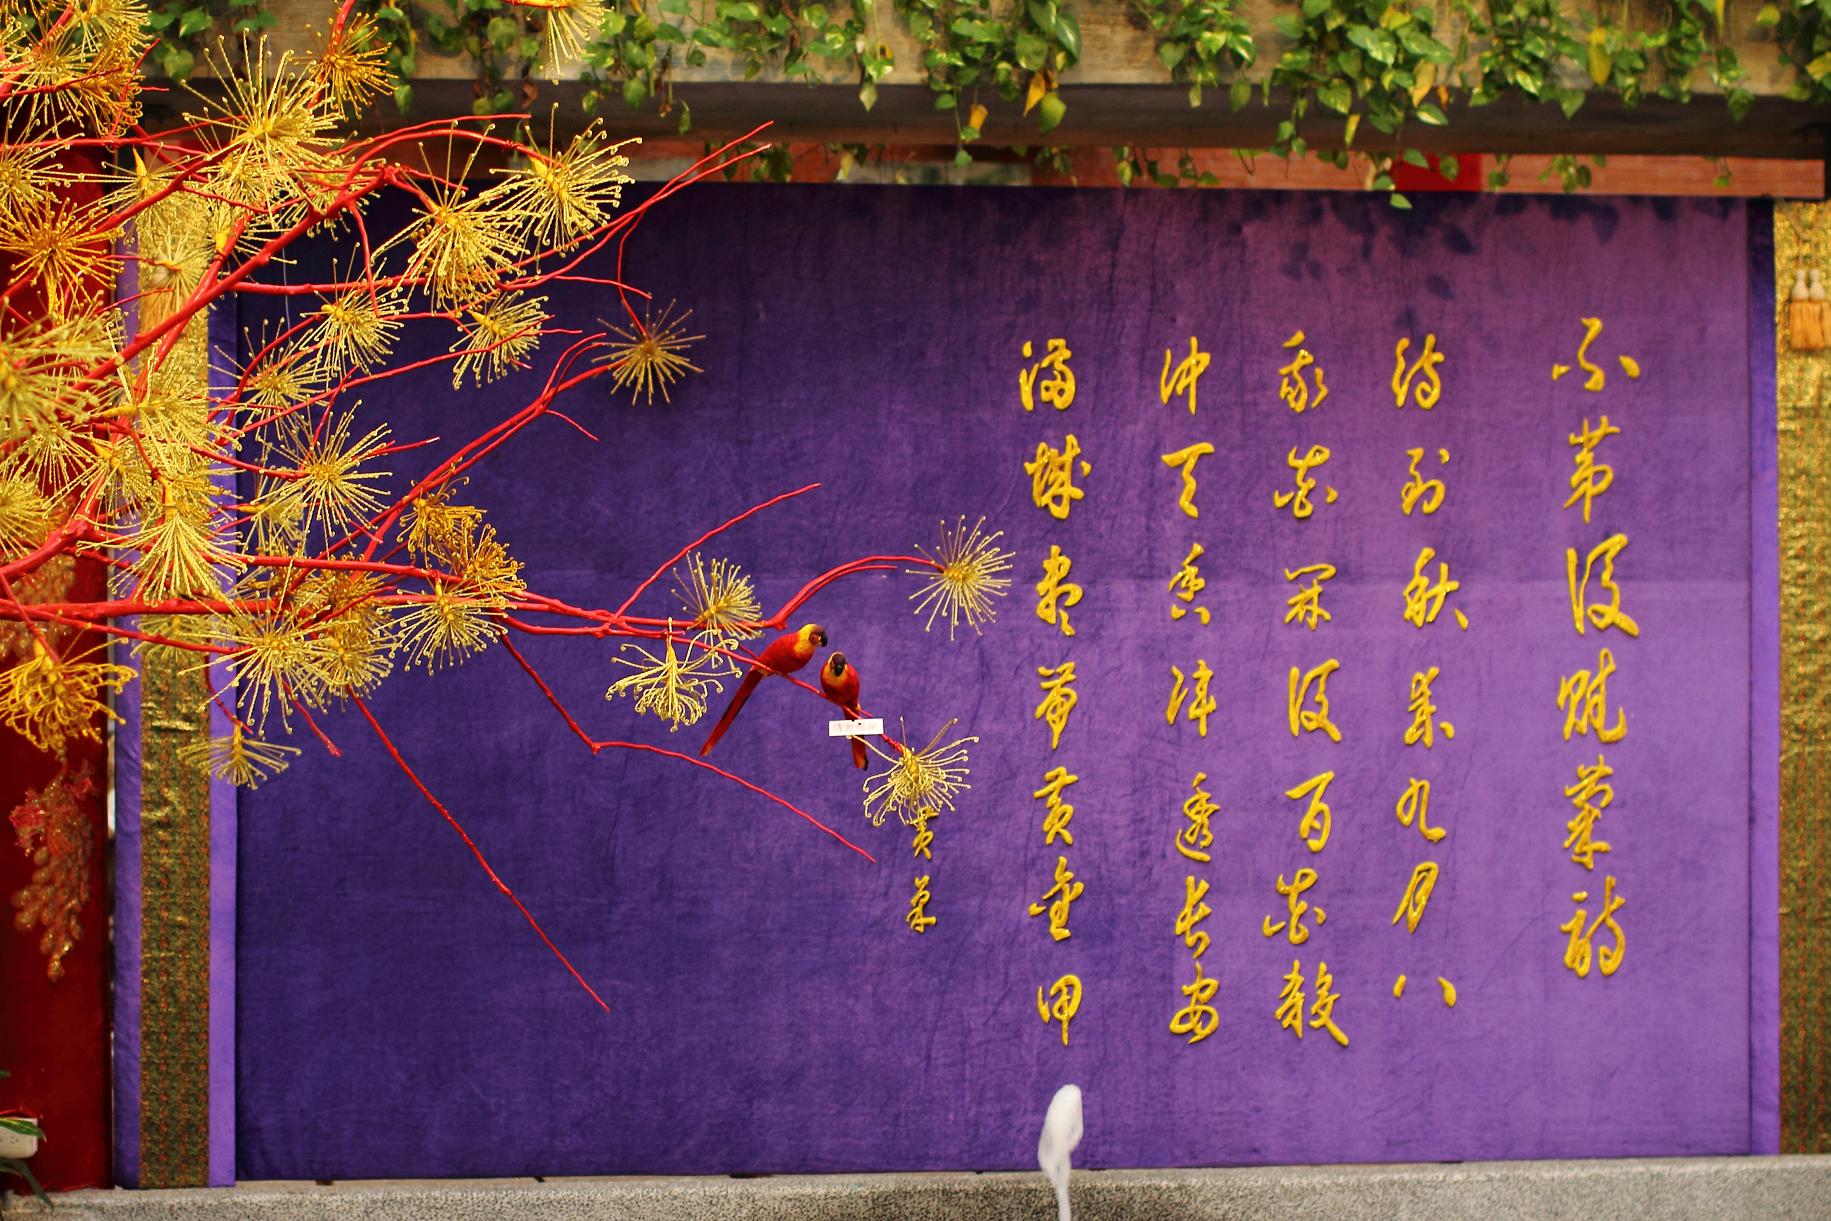 不第後賦菊詩
待到秋來九月八
我花開後百花殺
沖天香陣透長安
滿城盡帶黃金甲
黃巢